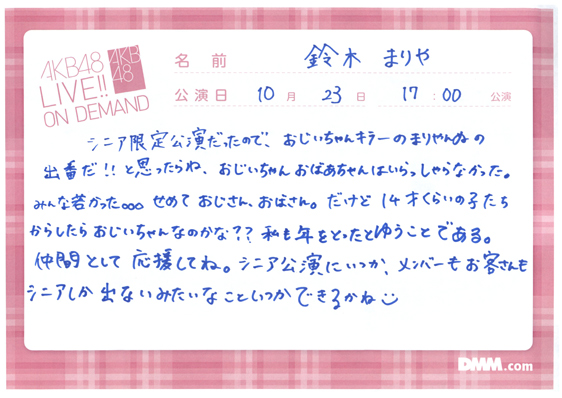 AKB48
LIVE!!
ON DEMAND
AKB
48
名前 鈴木 まりや
公演日 10月 23日 17:00 公演
シニア限定公演だったので、おじいちゃんキラーのまりやんぬの
出番だ!!と思ったらね、おじいちゃんおばあちゃんはいらっしゃらなかった。
みんな若かった。。。せめておじさん、おばさん。だけど14才くらいの子たち
からしたらおじいちゃんなのかな??私も年をとったとゆうことである。
仲間として応援してね。シニア公演にいつか、メンバーもお客さんも
シニアしか出ないみたいなこといつかできるかね
DMM.com